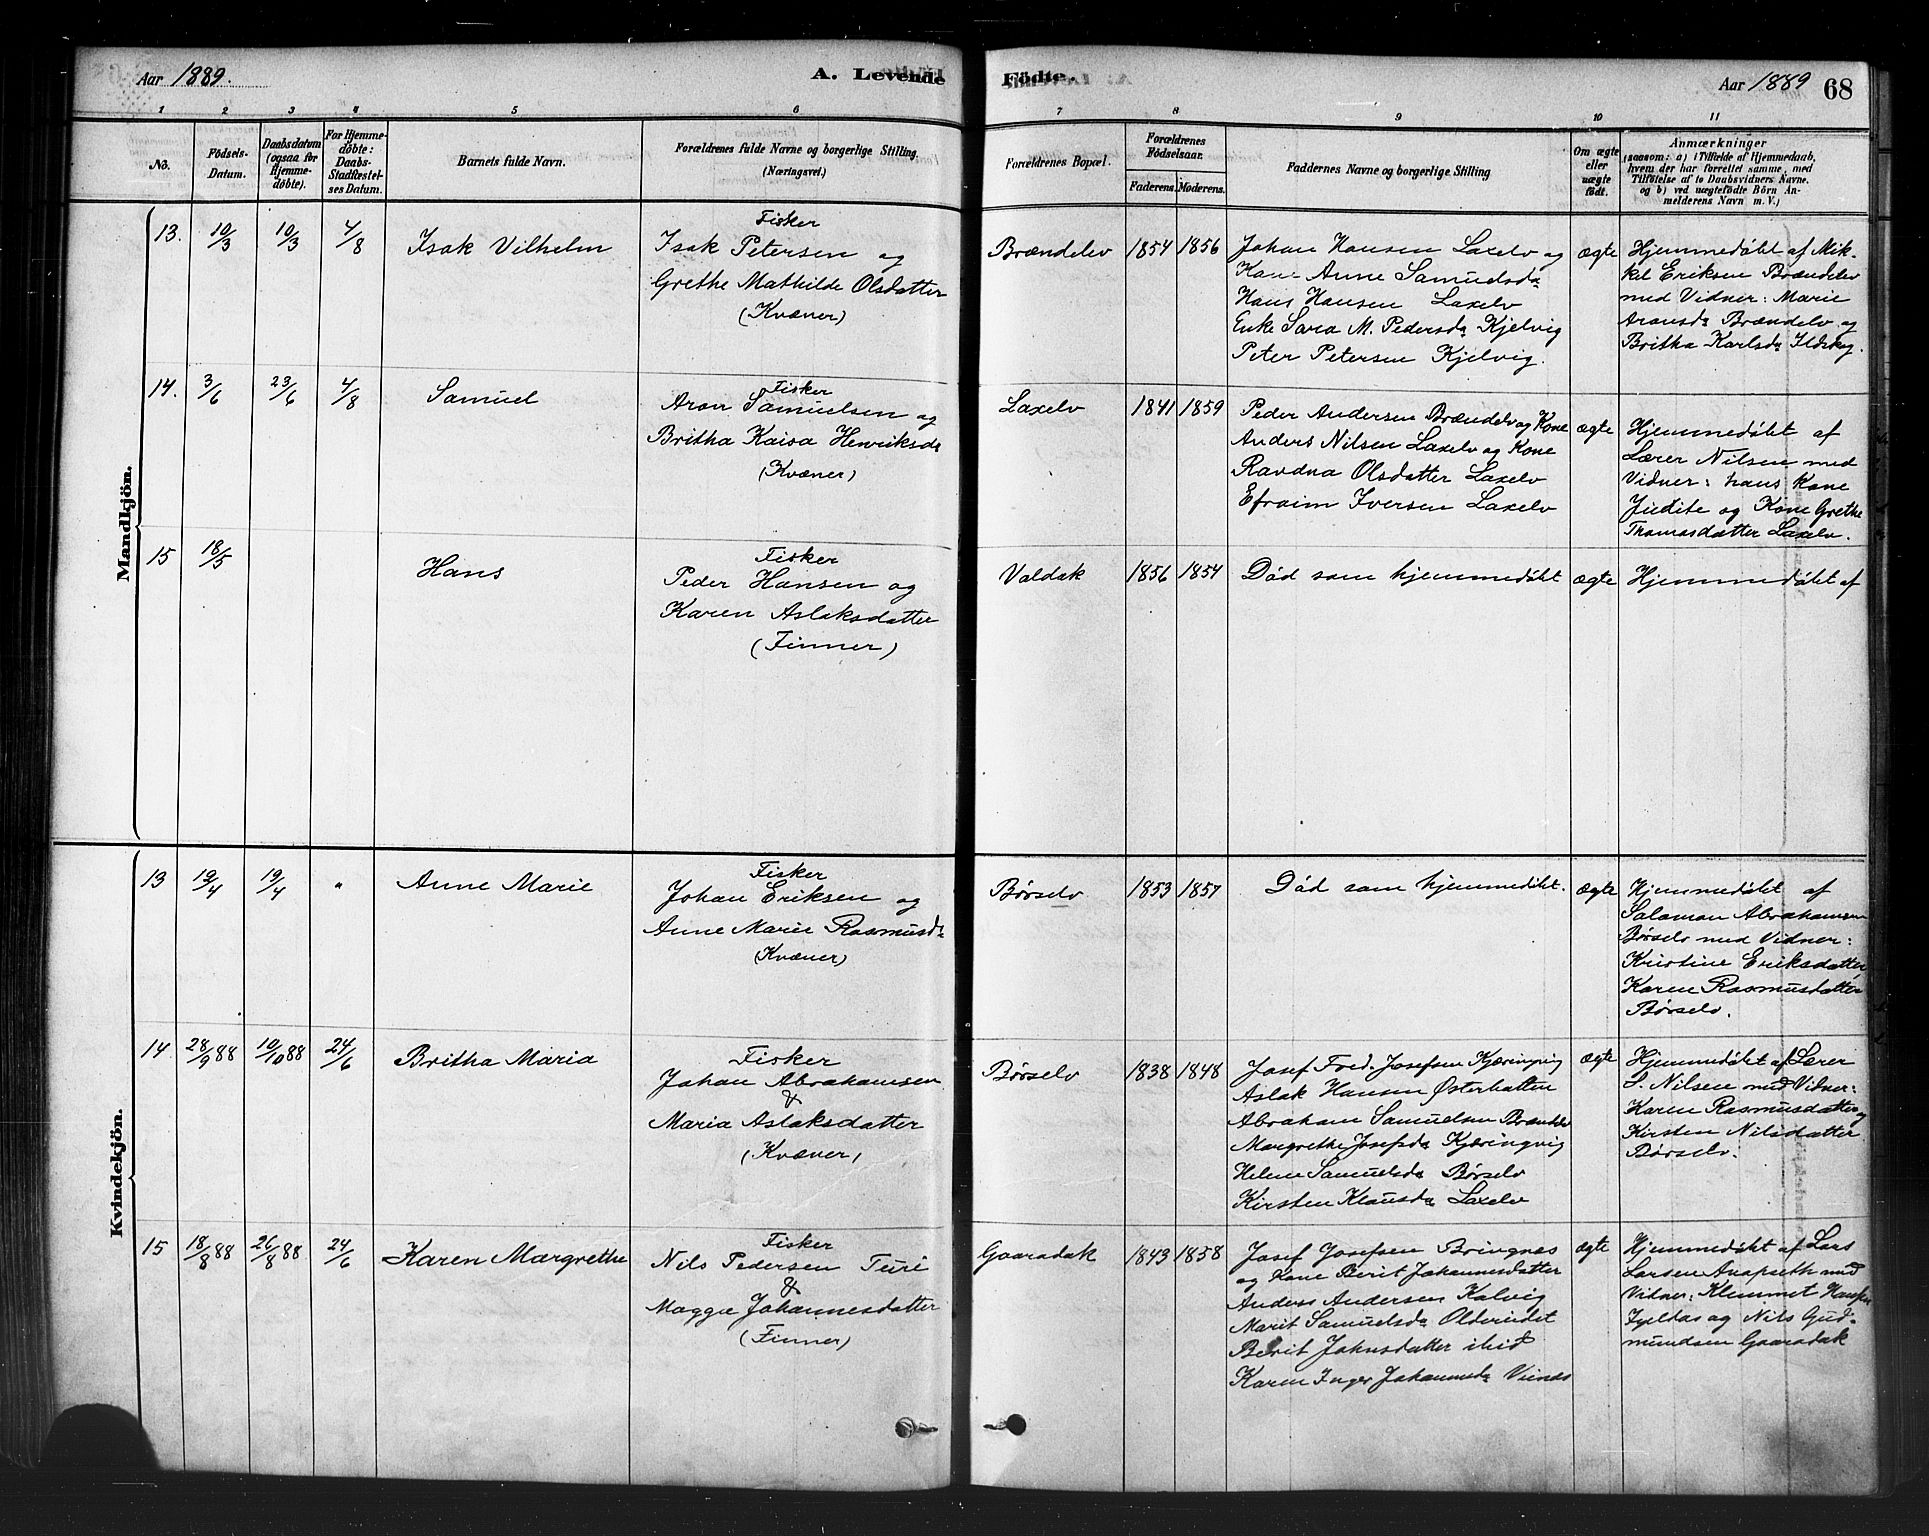 Aar 1889.
A. Levende
Födte.
Aar 1889
68
1 2 3 4 5 6 7 8 9 10 11
No.
Födsels-
Datum.
Daabsdatum
(ogsaa for
Hjemme-
döbte).
For Hjemme-
döbte:
Daabs-
Stadfæstel-
ses Datum.
Barnets fulde Navn.
Forældrenes fulde Navne og borgerlige Stilling.
(Næringsvei.)
Forældrenes Bopæl.
Forældrenes
Födselsaar.
Faderens. Moderens.
Faddernes Navne og borgerlige Stilling
Om ægte
eller
uægte
födt.
Anmærkninger
(saasom: a) i Tilfælde af Hjemmedaab,
hvem der har forrettet samme, med
Tilföielse af to Daabsvidners Navne.
og b) ved uægtefödte Börn An-
melderens Navn m. V.)
Mandkjön.
13. 10/3 10/3 4/8
Isak Vilhelm
Fisker
Isak Petersen og
Grethe Mathilde Olsdatter
(Kvæner)
Brændelv 1854 1856
Johan Hansen Laxelv og
Kone Anne Samuelsda
Hans Hansen Laxelv
Enke Sara M. Pedersda Kjelvig
Peter Petersen Kjelvig.
ægte
Hjemmedøbt af Mik-
kel Eriksen Brændelv
med Vidner: Marie
Aronsda Brændelv og
Britha Karlsda Ildskog.
14. 3/6 23/6 4/8
Samuel
Fisker
Aron Samuelsen og
Britha Kaisa Henriksda
(Kvæner)
Laxelv 1841 1859
Peder Andersen Brændelv og Kone
Anders Nilsen Laxelv og Kone
Ravdna Olsdatter Laxelv
Efraim Iversen Laxelv
ægte
Hjemmedøbt af
Lærer Nilsen med
Vidner: hans Kone
Judite og Kone Grethe
Thomasdatter Laxelv.
15 18/5
Hans
Fisker
Peder Hansen og
Karen Aslaksdatter
(Finner)
Valdak 1856 1854
Død som hjemmedøbt
ægte
Hjemmedøbt af
Kvindekjön.
13 19/4 19/4 "
Anne Marie
Fisker
Johan Eriksen og
Anne Marie Rasmusda
(Kvæner)
Børselv 1853 1857
Død som hjemmedøbt.
ægte
Hjemmedøbt af
Salamon Abrahamsen
Børselv med Vidner:
Kristine Eriksdatter
Karen Rasmusdatter
Børselv.
14. 28/9 88 10/10 88 24/6
Britha Maria
Fisker
Johan Abrahamsen
&
Maria Aslaksdatter
(Kvæner)
Børselv 1838 1848
Josef Fred. Josefsen Kjæringvig
Aslak Hansen Østerbotten
Abraham Samuelsen Brændelv
Margrethe Josefsda Kjæringvig
Helene Samuelsda Børselv
Kirsten Klausda Laxelv
ægte
Hjemmedøbt af Lærer
S. Nilsen med Vidner:
Karen Rasmusdatter og
Kirsten Nilsdatter
Børselv.
15 18/8 88 26/8 88 24/6
Karen Margrethe
Fisker
Nils Pedersen Turi
&
Magga Johannesdatter
(Finner)
Gaaradak 1843 1858
Josef Josefsen Bringnes
og Kone Berit Johannesdatter
Anders Andersen Kolvig
Marit Samuelsda Olderindet
Berit Johnsdatter ibid
Karen Inger Johannesda Vienes
ægte
Hjemmedøbt af Lars
Larsen Anopseth med
Vidner: Klemmet Hansen
og Nils Gud-
mundsen Gaaradak